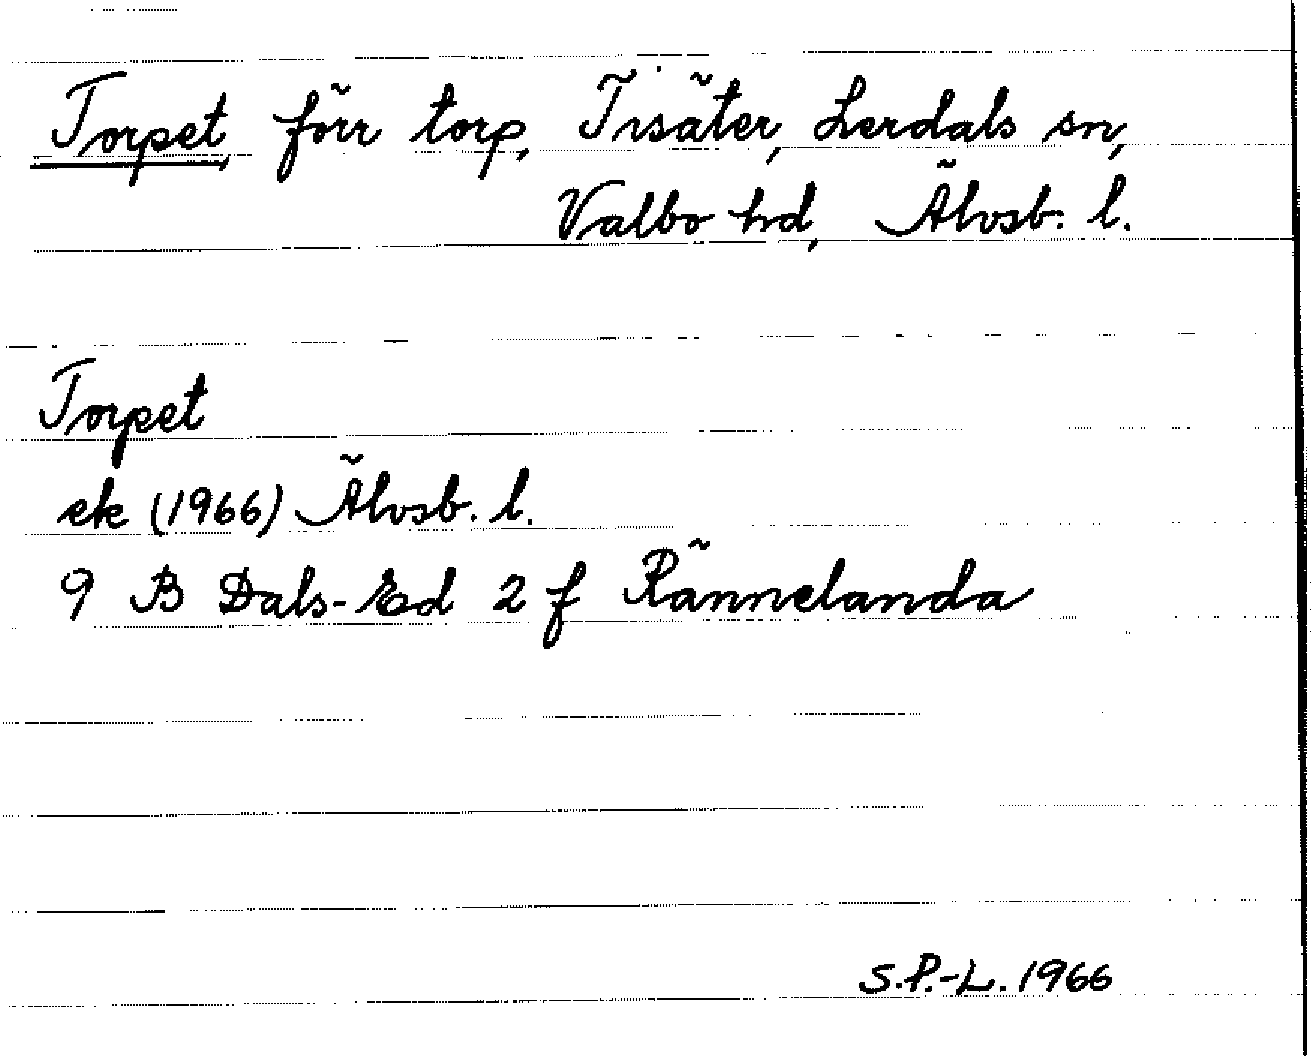 Torpet, förr torp, Tisäter, Lerdals sn,
Valbo hd, Älvsb. l.
Torpet
ek (1966) Älvsb. l.
9 B Dals-Ed 2 f Rännelanda
S.P.-L. 1966